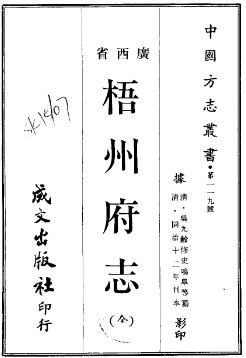 中國方志叢書・第一一九號
廣西省
據
清・吳九齡修史鳴皋等纂
清・同治十二年刊本
影印
梧州府志
(全)
成文出版社印行